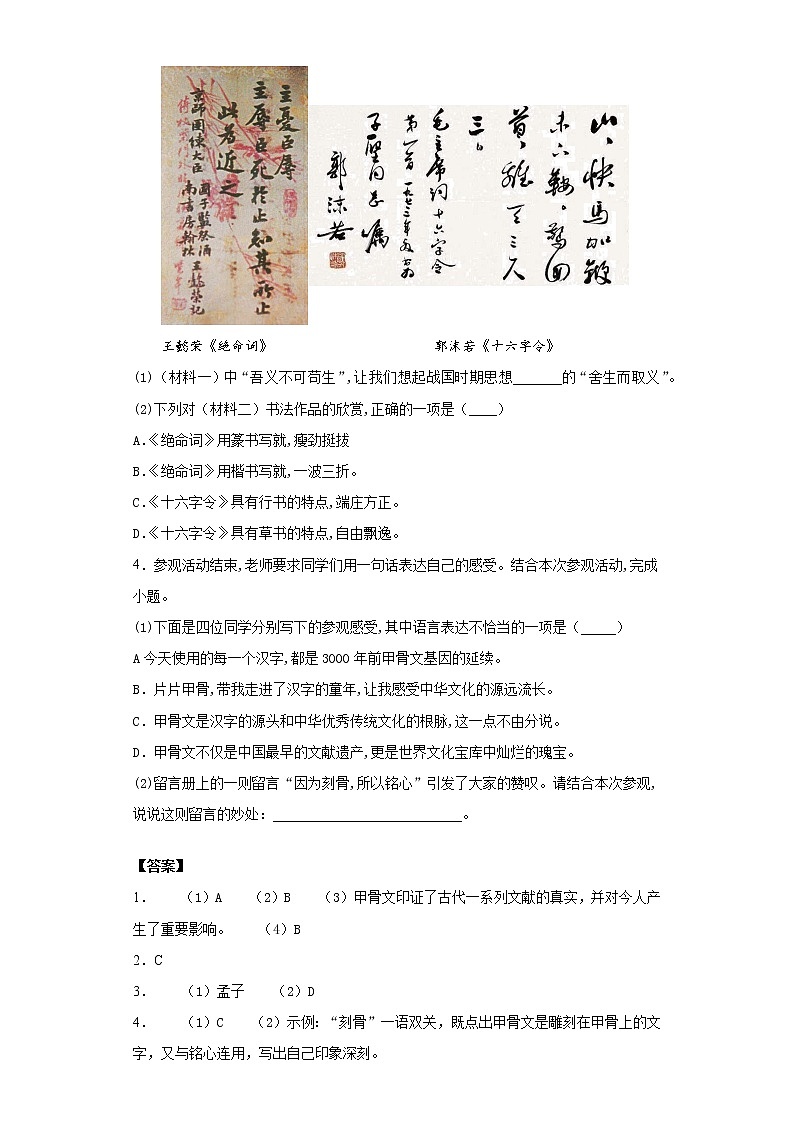 主憂臣辱
主辱臣死於止知其所止
此為近之
京師團練大臣
國子監祭酒
南書房翰林
王懿榮記
山、快馬加鞭
未下鞍。驚回
首，離天三尺
三。
毛主席词十六字令
郭沫若
王懿荣《绝命词》
郭沫若《十六字令》
(1)（材料一）中“吾义不可苟生”,让我们想起战国时期思想_______的“舍生而取义”。
(2)下列对（材料二）书法作品的欣赏,正确的一项是（____）
A.《绝命词》用篆书写就,瘦劲挺拔
B.《绝命词》用楷书写就,一波三折。
C.《十六字令》具有行书的特点,端庄方正。
D.《十六字令》具有草书的特点,自由飘逸。
4. 参观活动结束,老师要求同学们用一句话表达自己的感受。结合本次参观活动,完成
小题。
(1)下面是四位同学分别写下的参观感受,其中语言表达不恰当的一项是（_____）
A今天使用的每一个汉字,都是3000年前甲骨文基因的延续。
B. 片片甲骨,带我走进了汉字的童年,让我感受中华文化的源远流长。
C. 甲骨文是汉字的源头和中华优秀传统文化的根脉,这一点不由分说。
D. 甲骨文不仅是中国最早的文献遗产,更是世界文化宝库中灿烂的瑰宝。
(2)留言册上的一则留言“因为刻骨,所以铭心”引发了大家的赞叹。请结合本次参观,
说说这则留言的妙处: ___________________________。
【答案】
1. （1）A （2）B （3）甲骨文印证了古代一系列文献的真实，并对今人产
生了重要影响。 （4）B
2.C
3. （1）孟子 （2）D
4. （1）C （2）示例：“刻骨”一语双关，既点出甲骨文是雕刻在甲骨上的文
字，又与铭心连用，写出自己印象深刻。